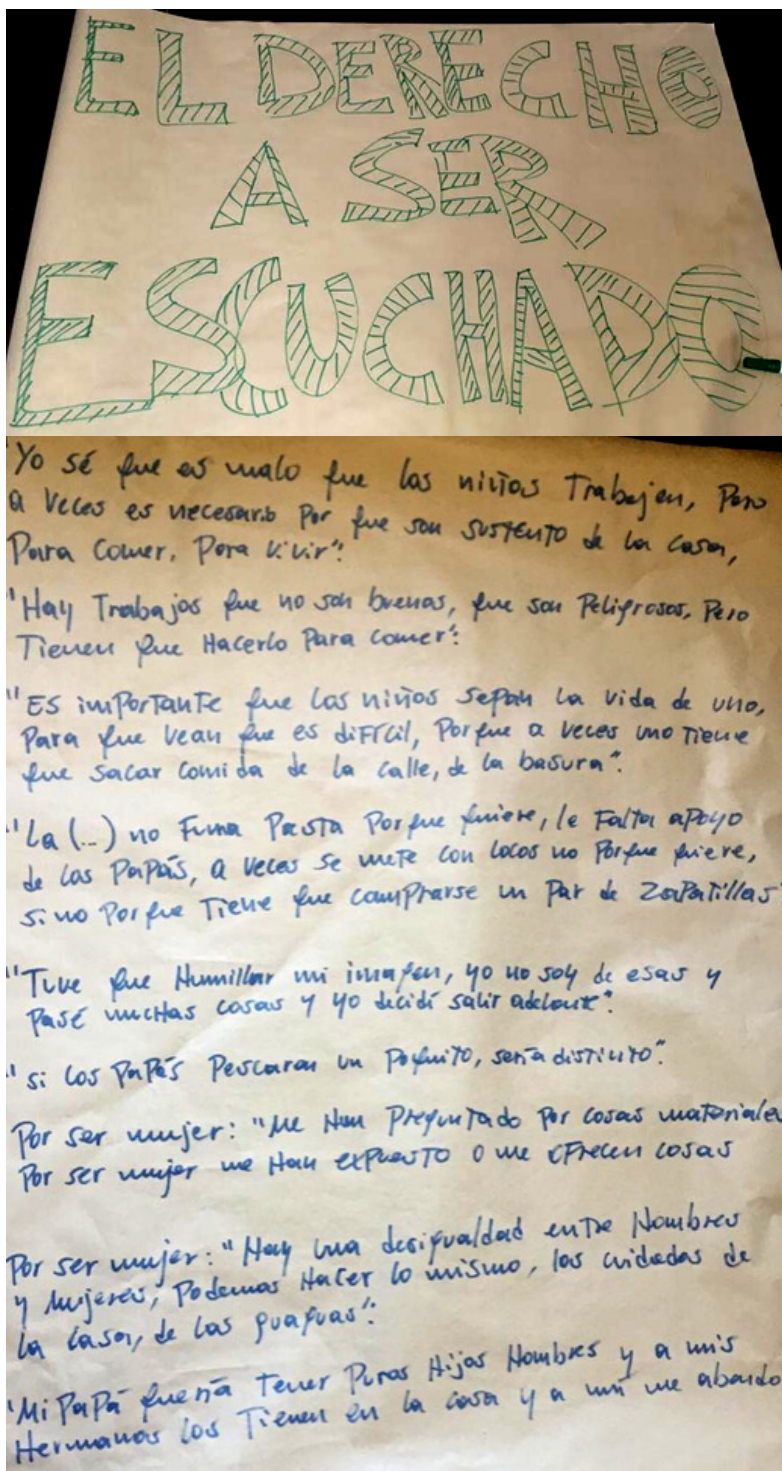 EL DERECHO
A SER
ESCUCHADO
"Yo sé que es malo que los niños Trabajen, Pero
a veces es necesario Por que son SUSTENTO de la casa,
Para Comer, Para vivir".
"Hay Trabajos que no son buenos, que son Peligrosos, Pero
Tienen que Hacerlo Para comer".
"ES imPorTanTe que Los niños sepan la vida de uno,
Para que vean que es diFÍCil, Porque a veces uno Tiene
que sacar comida de la calle, de la basura".
"La (...) no Fuma Pasta Porque quiere, le Falta aPoyo
de los PaPás, a veces se mete con locos no Porque quiere,
sino Porque Tiene que comprarse un Par de ZaPatillas"
"Tuve que Humillar mi imagen, yo no soy de esas y
Pasé muchas cosas y yo decidí salir adelante".
"si los PaPás Pescaran un Poquito, sería disTinTo".
Por ser mujer: "Me Han PregunTado Por cosas materiales
Por ser mujer me Han exPuesTo o me oFrecen cosas
Por ser mujer: "Hay una desigualdad entre Hombres
y mujeres, Podemos Hacer lo mismo, los cuidados de
la casa, de las guaguas".
"Mi PaPá quería Tener Puros Hijos Hombres y a mis
Hermanos los Tienen en la casa y a mí me abando